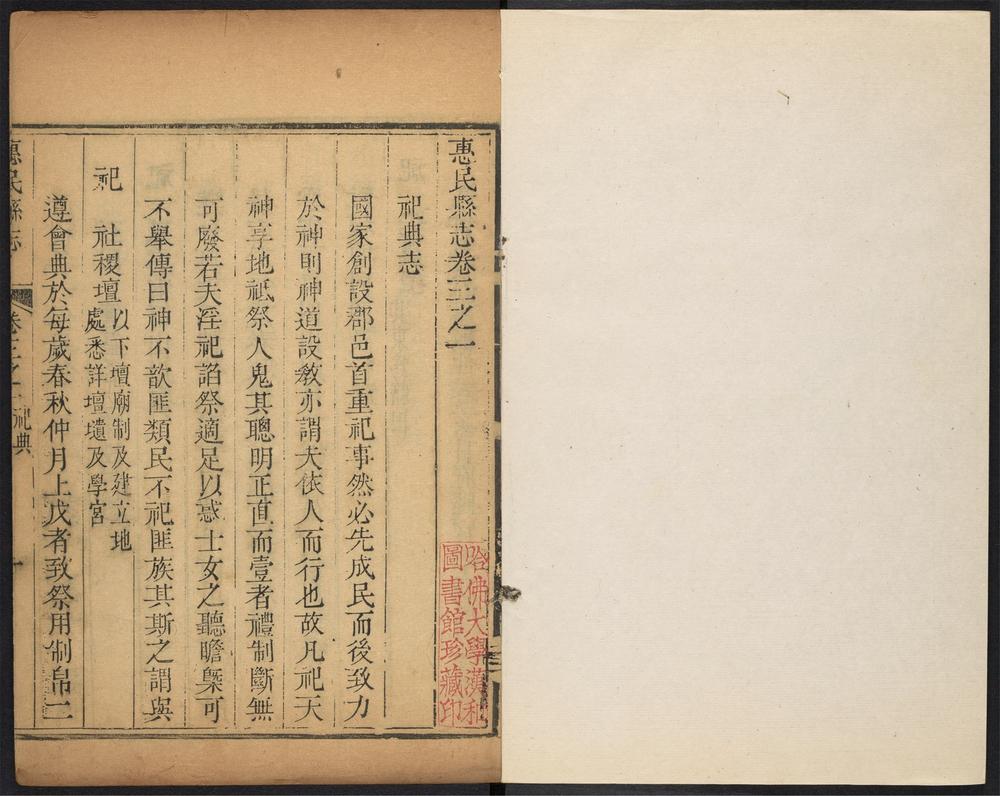 惠民縣志卷三之一
祀典志
國家創設郡邑首重祀事然必先成民而後致力
於神則神道設教亦謂夫依人而行也故凡祀天
神享地祇祭人鬼其聰明正直而壹者禮制斷無
可廢若夫淫祀諂祭適足以惑士女之聽瞻槩可
不舉傳曰神不歆匪類民不祀匪族其斯之謂與
祀 社稷壇以下壇廟制及建立地
處悉詳壇壝及學宮
遵會典於每歲春秋仲月上戊者致祭用制帛二
惠民縣志 卷三之一 祀典 一
哈佛大學漢和
圖書館珍藏印